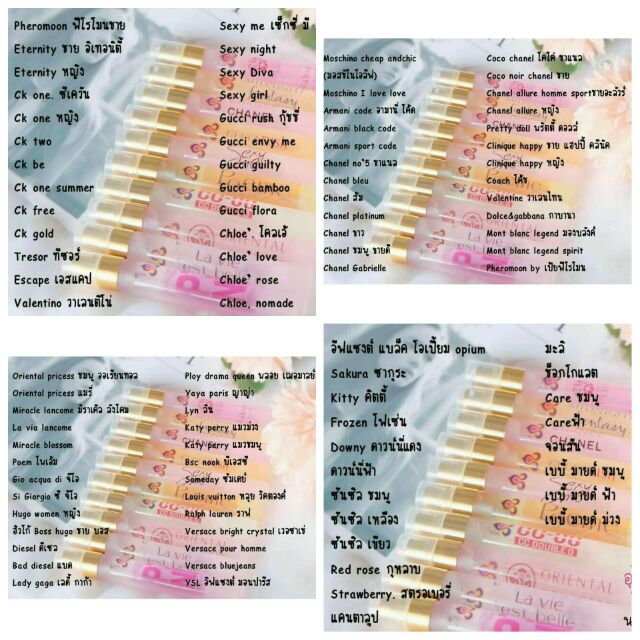 Pheromoon ฟีโรโมนชาย
Eternity ชาย อิเทอนตี้
Eternity หญิง
Ck one. ซีเควัน
Ck one หญิง
Ck two
Ck be
Ck one summer
Ck free
Ck gold
Tresor ทีซอร์
Escape เอสแคป
Valentino วาเลนติโน่
Sexy me เซ็กซี่ มี
Sexy night
Sexy Diva
Sexy girl
Gucci rush กุ๊ชชี่
Gucci envy me
Gucci guilty
Gucci bamboo
Gucci flora
Chloe'. โคลเอ้
Chloe' love
Chloe' rose
Chloe, nomade
Moschino cheap andchic
(มอสชิโนโอลีฟ)
Moschino I love love
Armani code อามานี่ โค้ด
Armani black code
Armani sport code
Chanel no'5 ชาแนล
Chanel bleu
Chanel ส้ม
Chanel platinum
Chanel ขาว
Chanel ชมพู ขายดี
Chanel Gabrielle
Coco chanel โคโค่ ชาแนล
Coco noir chanel ชาย
Chanel allure homme sportชายอะลัวร์
Chanel allure หญิง
Pretty doll พริตตี้ ดอลล์
Clinique happy ชาย แฮปปี้ คลีนิค
Clinique happy หญิง
Coach โค้ช
Valentine วาเลนไทน
Dolce&gabbana กาบานา
Mont blanc legend มองบลังค์
Mont blanc legend spirit
Pheromoon by เป้ยฟีโรโมน
Oriental pricess ชมพู ออเรียนทอล
Oriental pricess แมรี่
Miracle lancome มิราเคิล ลังโคม
La via lancome
Miracle blossom
Poem โพเอ้ม
Gio acqua di จิโอ
Si Giorgio ซี จิโอ
Hugo women หญิง
ฮิวโก้ Boss hugo ชาย บอส
Diesel ดีเซล
Bad diesel แบด
Lady gaga เลดี้ กาก้า
Ploy drama queen พลอย เฌอมาลย์
Yaya paris ญาญ่า
Lyn ลิน
Katy perry แมวม่วง
Katy perry แมวชมพู
Bsc nook บีเอสซี
Someday ซัมเดย์
Louis vuitton หลุย วิตตองค์
Ralph lauren ราฟ
Versace bright crystal เวอซาเช่
Versace pour homme
Versace bluejeans
YSL อีฟแซงต์ มอนปารีส
อีฟแซงต์ แบล็ค โอเปี้ยม opium
Sakura ซากุระ
Kitty คิตตี้
Frozen โฟเซ่น
Downy ดาวน์นี่แดง
ดาวน์นี่ฟ้า
ซันซิล ชมพู
ซันซิล เหลือง
ซันซิล เขียว
Red rose กุหลาบ
Strawberry. สตรอเบอรี่
แคนตาลูป
มะลิ
ช็อกโกแลต
Care ชมพู
Careฟ้า
จอนสัน
เบบี้ มายด์ ชมพู
เบบี้ มายด์ ฟ้า
เบบี้ มายด์ ม่วง